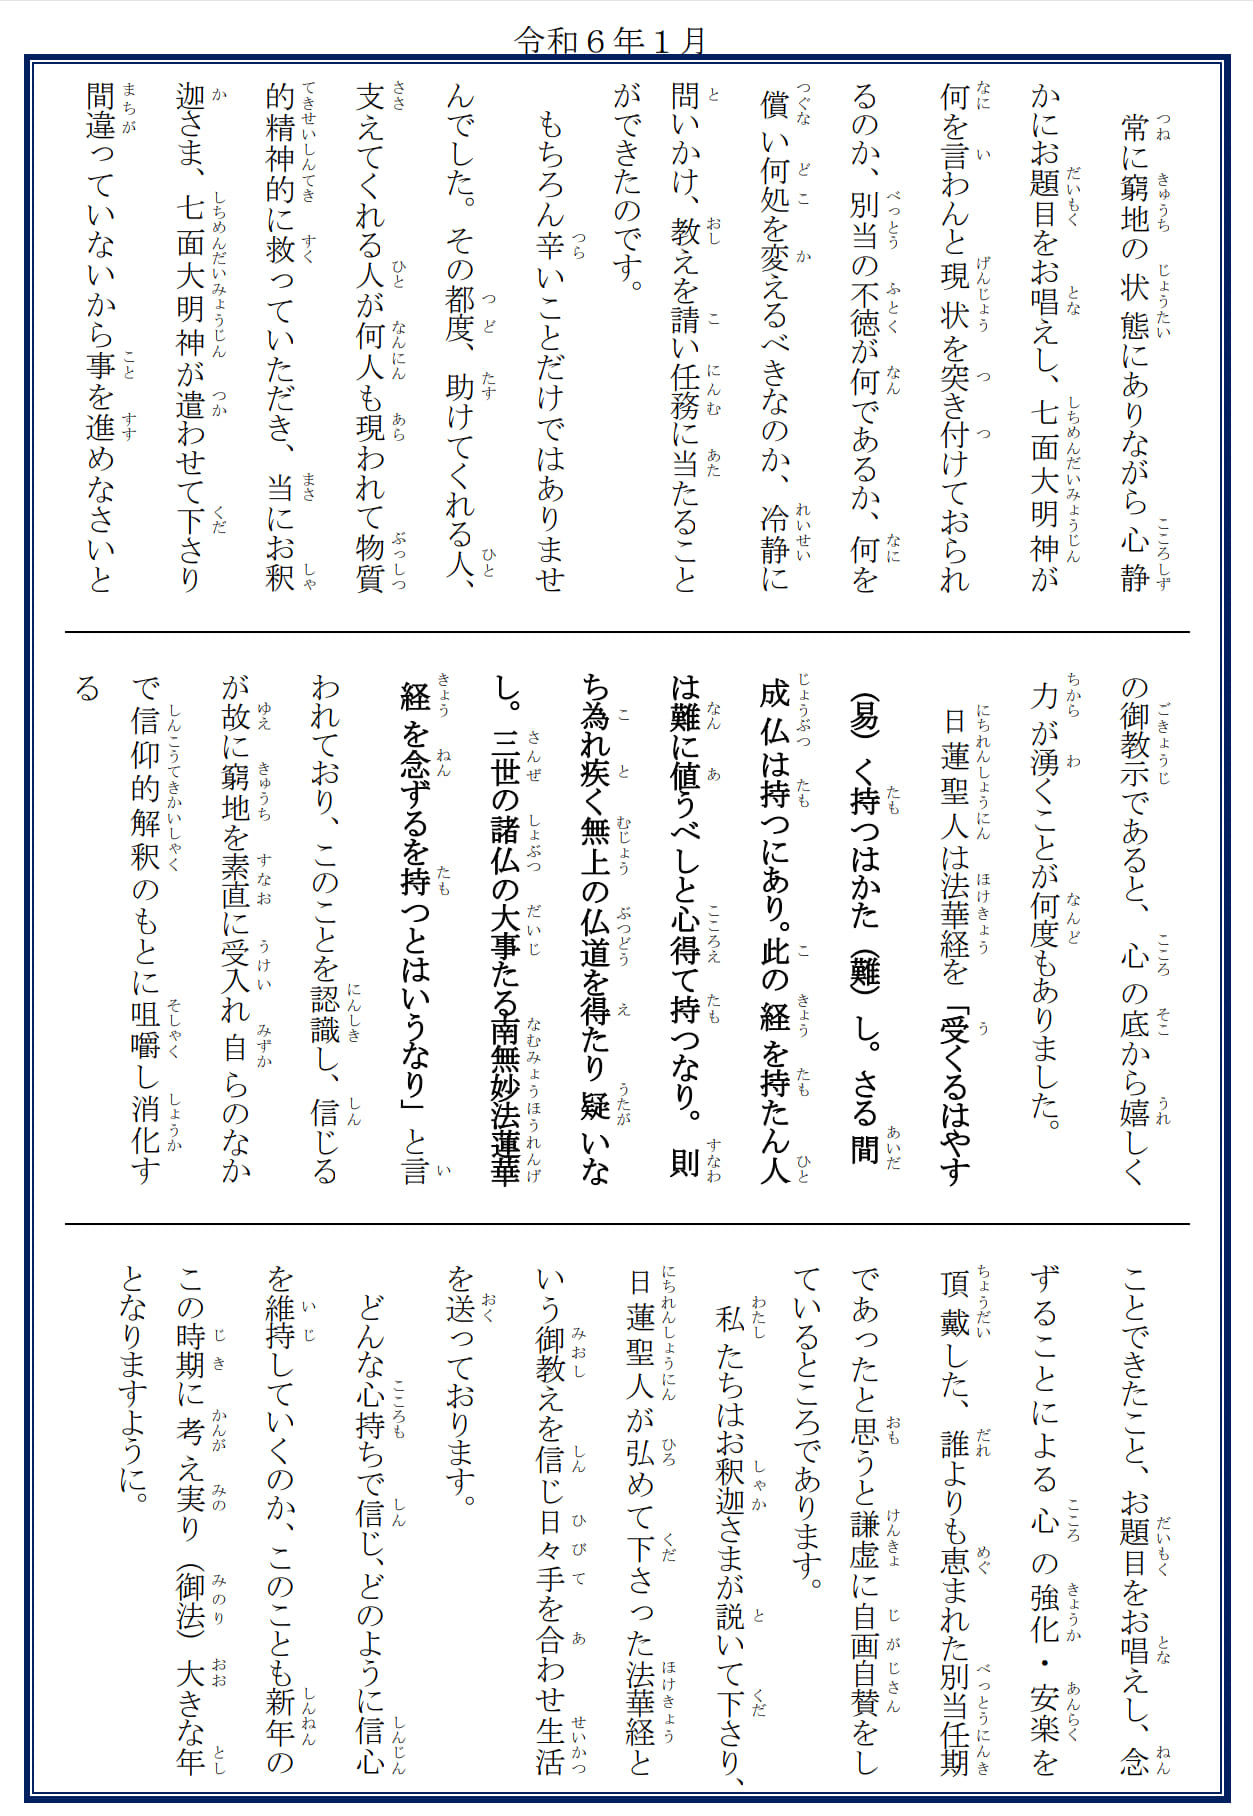 令和６年１月
常に窮地の状態にありながら心静
かにお題目をお唱えし、七面大明神が
何を言わんと現状を突き付けておられ
るのか、別当の不徳が何であるか、何を
償い何処を変えるべきなのか、冷静に
問いかけ、教えを請い任務に当たること
ができたのです。
もちろん辛いことだけではありませ
んでした。その都度、助けてくれる人、
支えてくれる人が何人も現われて物質
的精神的に救っていただき、当にお釈
迦さま、七面大明神が遣わせて下さり
間違っていないから事を進めなさいと
の御教示であると、心の底から嬉しく
力が湧くことが何度もありました。
日蓮聖人は法華経を「受くるはやす
（易）く持つはかた（難）し。さる間
成仏は持つにあり。此の経を持たん人
は難に値うべしと心得て持つなり。則
ち為れ疾く無上の仏道を得たり疑いな
し。三世の諸仏の大事たる南無妙法蓮華
経を念ずるを持つとはいうなり」と言
われており、このことを認識し、信じる
が故に窮地を素直に受入れ自らのなか
で信仰的解釈のもとに咀嚼し消化す
る
ことできたこと、お題目をお唱えし、念
ずることによる心の強化・安楽を
頂戴した、誰よりも恵まれた別当任期
であったと思うと謙虚に自画自賛をし
ているところであります。
私たちはお釈迦さまが説いて下さり、
日蓮聖人が弘めて下さった法華経と
いう御教えを信じ日々手を合わせ生活
を送っております。
どんな心持ちで信じ、どのように信心
を維持していくのか、このことも新年の
この時期に考え実り（御法）大きな年
となりますように。